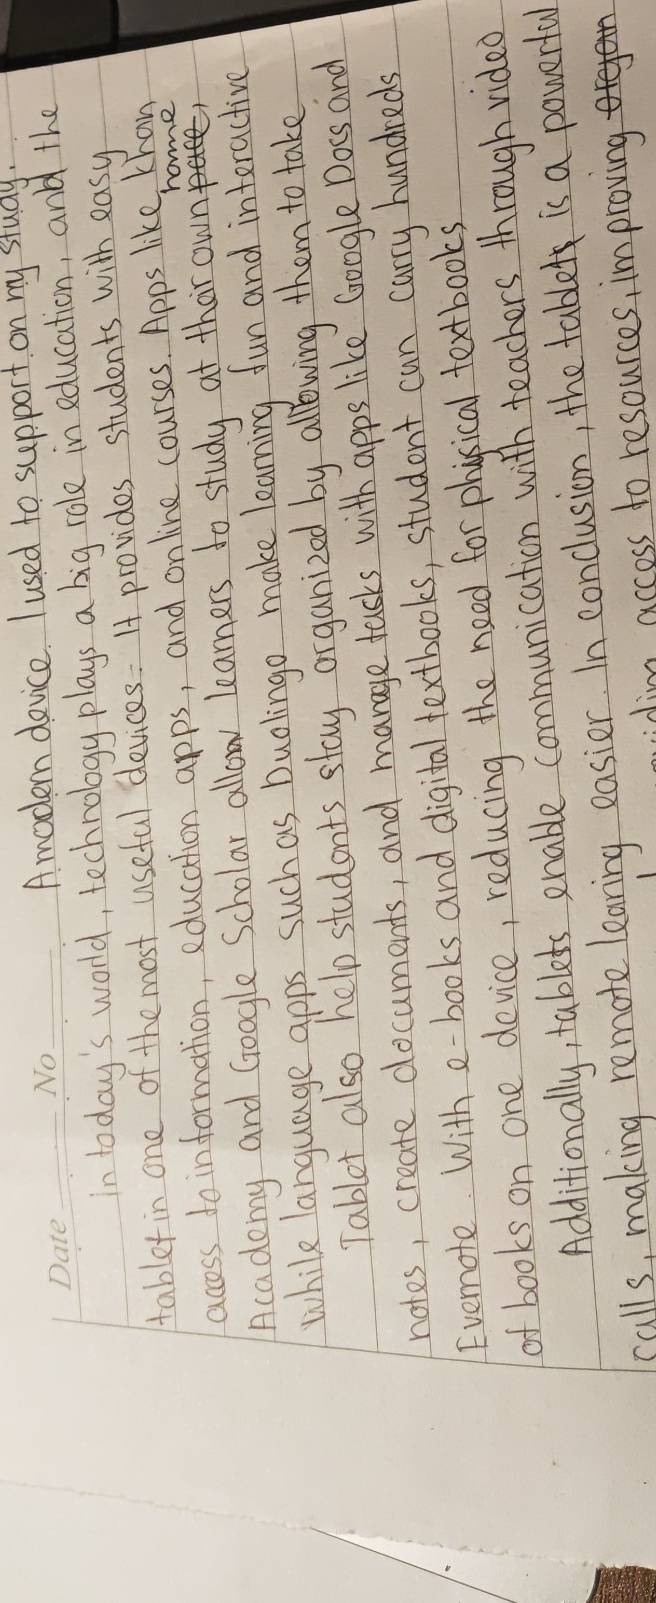 Date No
A modern device I used to support on my study.
In today's world, technology plays a big role in education, and the
tablet in one of the most useful devices. It provides students with easy
access to information, education apps, and online courses. Apps like khan
home
Academy and Google Scholar allow learners to study at their own pace,
While language apps such as Duolingo make learning fun and interactive
Tablet also help students stay organized by allowing them to take
notes, create documents, and manage tasks with apps like Google Doss and
Evernote. With e-books and digital textbooks, student can carry hundreds
of books on one device, reducing the need for phisical textbooks,
Additionally, tablets enable communication with teachers through video
calls, making remote learing easier. In conclusion, the tablets is a powerful
access to resources, improving